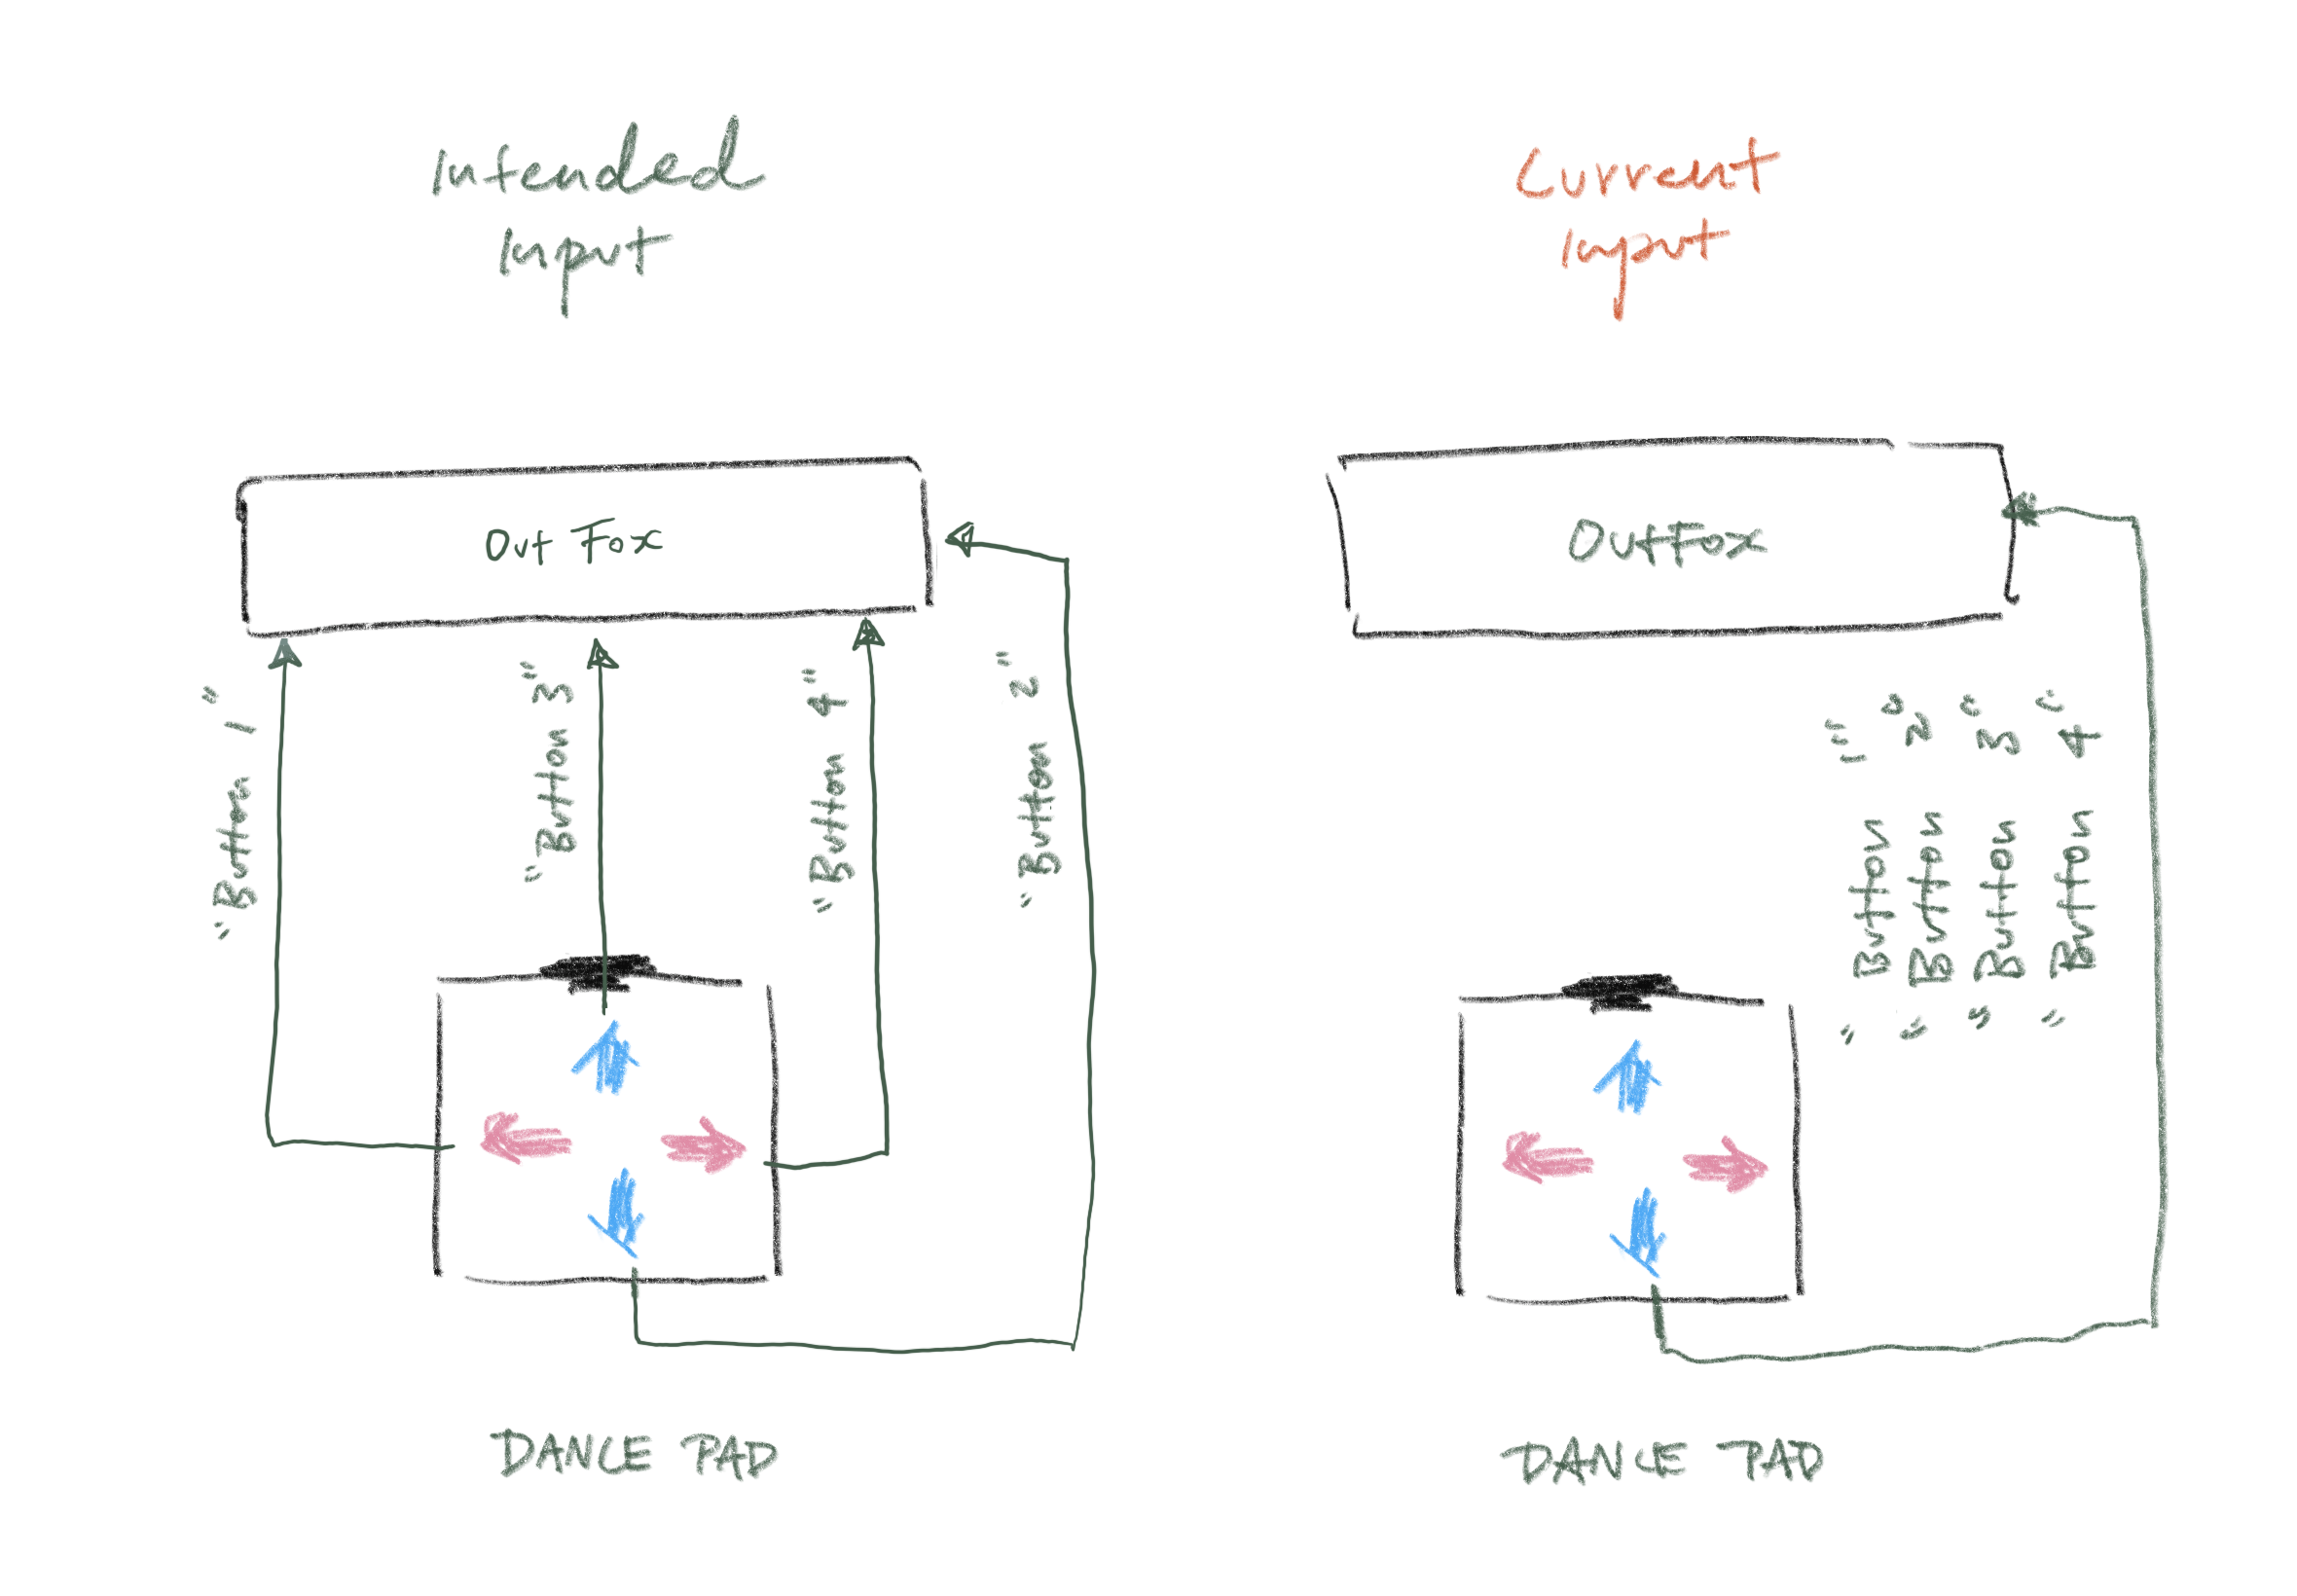 Intended
Input
Out Fox
"Button 1"
"Button 3"
"Button 4"
"Button 2"
DANCE PAD
Current
Input
OutFox
"Button 1"
"Button 2"
"Button 3"
"Button 4"
DANCE PAD